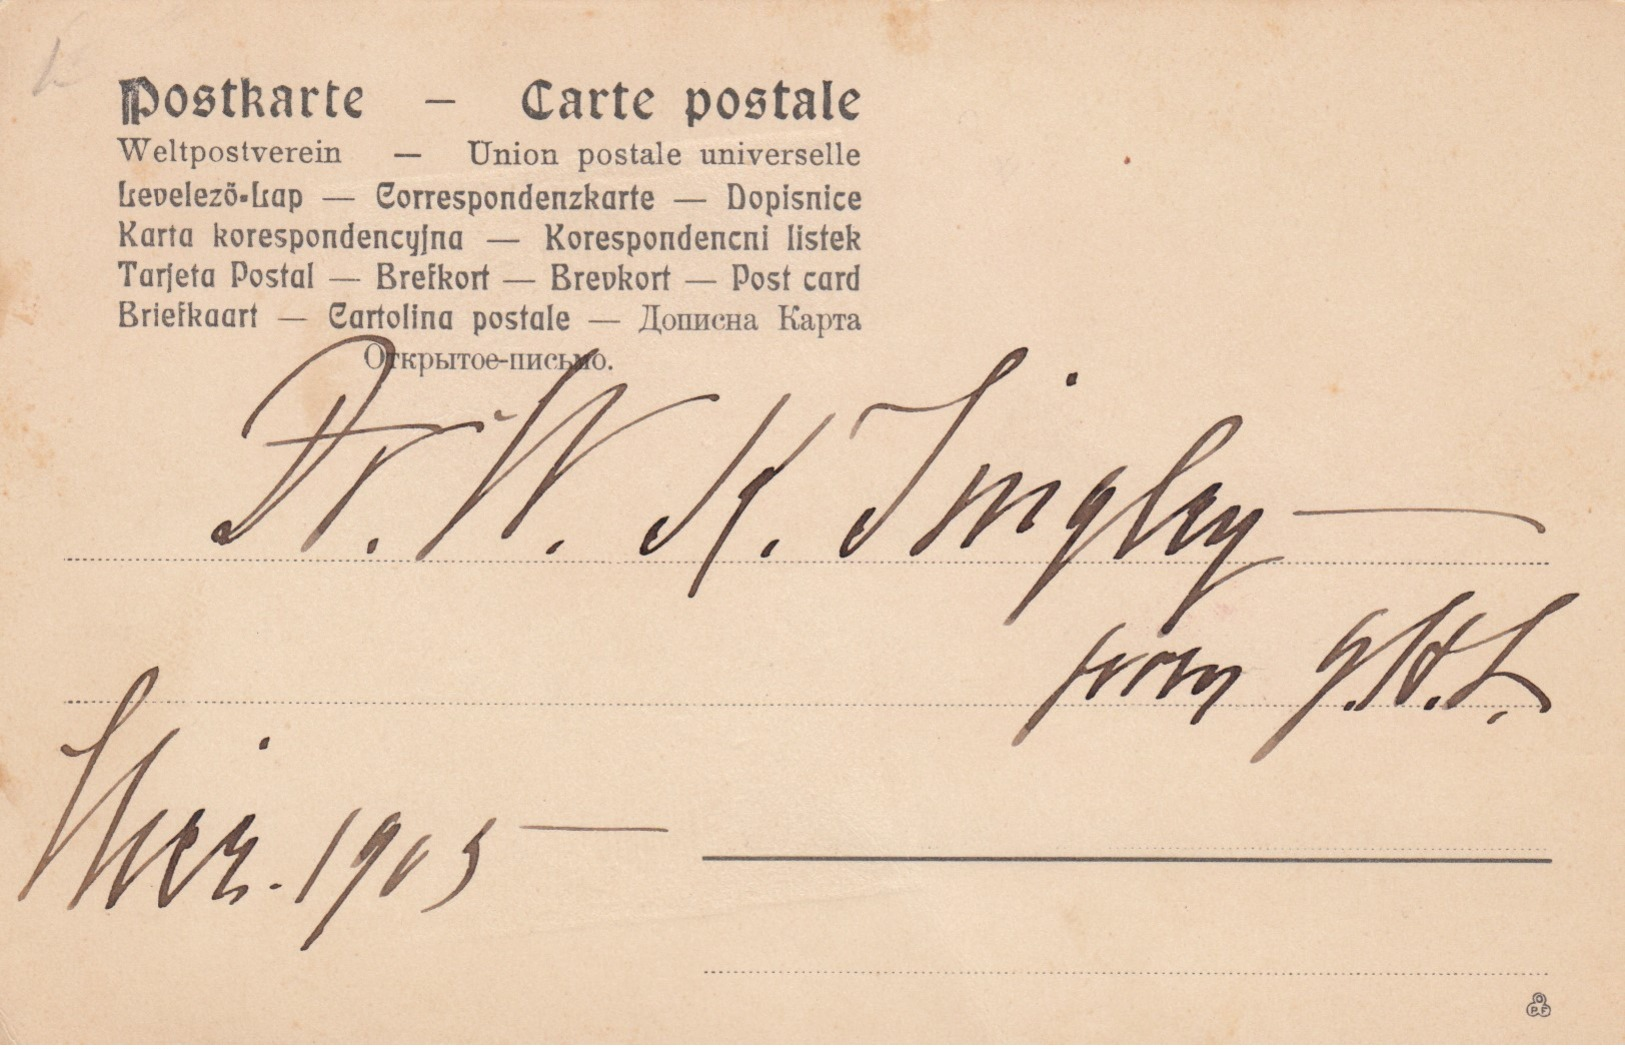 Postkarte — Carte postale
Weltpostverein — Union postale universelle
Levelező-Lap — Correspondenzkarte — Dopisnice
Karta korespondencyjna — Korespondencni listek
Tarjeta Postal — Brefkort — Brevkort — Post card
Briefkaart — Cartolina postale — Дописна Карта
Открытое-письмо.
Dr. W. K.
from G.H.L.
1905 —
O
P.F